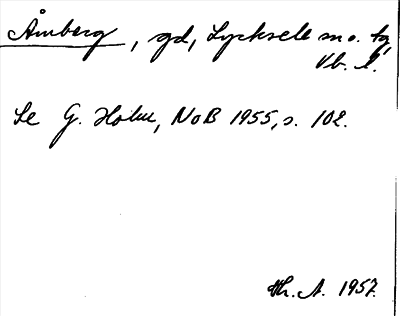 Åmberg, gd, Lycksele sn o. tg,
Vb. l.
Se G. Holm, NoB 1955, s. 102.
Hr. A. 1957.